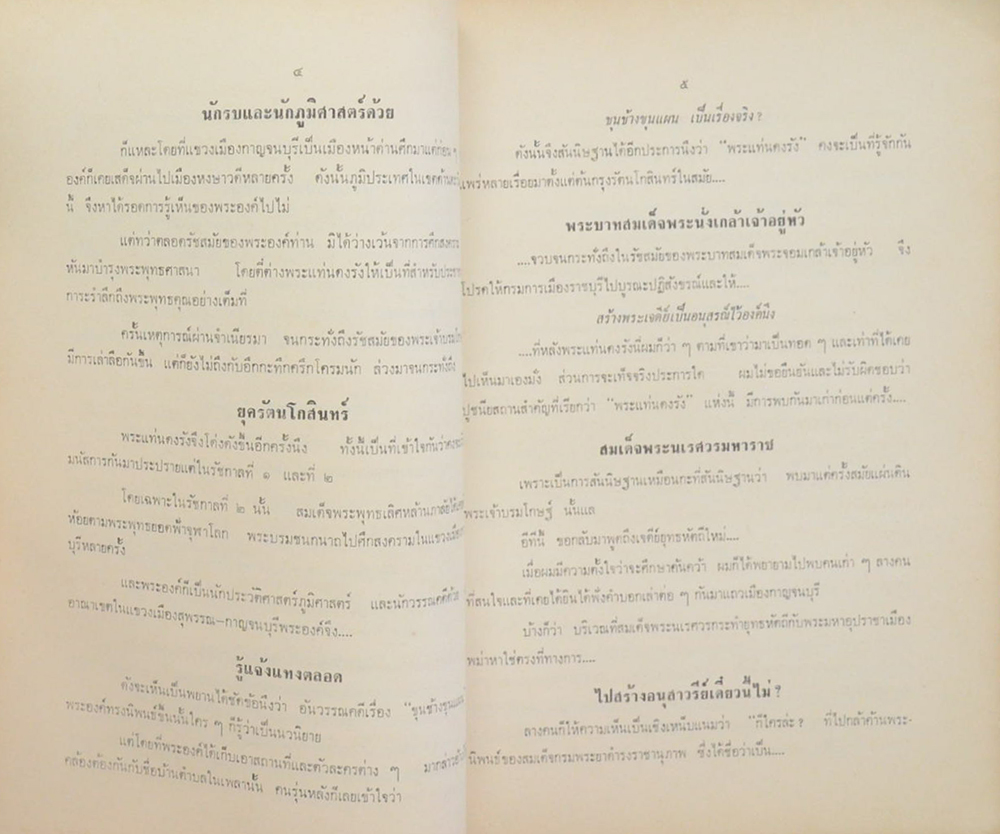 ๔
นักรบและนักภูมิศาสตร์ด้วย
ก็แหละโดยที่แขวงเมืองกาญจนบุรีเป็นเมืองหน้าด่านศึกมาแต่ก่อน ๆ
องค์ก็เคยเสด็จผ่านไปเมืองหงษาวดีหลายครั้ง ดังนั้นภูมิประเทศในเขต
นี้ จึงหาได้รอดการรู้เห็นของพระองค์ไปไม่
แต่ทว่าตลอดรัชสมัยของพระองค์ท่าน มิได้ว่างเว้นจากการศึกสงคราม
หันมาบำรุงพระพุทธศาสนา โดยที่ต่างพระแท่นดงรังให้เป็นที่สำหรับ
การะรำลึกถึงพระพุทธคุณอย่างเต็มที่
ครั้นเหตุการณ์ผ่านจำเนียรมา จนกระทั่งถึงรัชสมัยของพระเจ้า
มีการเล่าลือกันขึ้น แต่ก็ยังไม่ถึงกับอึกกะทึกครึกโครมนัก ล่วงมาจนกระทั่งถึง
ยุครัตนโกสินทร์
พระแท่นดงรังจึงโด่งดังขึ้นอีกครั้งนึง ทั้งนี้เป็นที่เข้าใจกันว่า
มนัสการกันมาประปรายแต่ในรัชกาลที่ ๑ และที่ ๒
โดยเฉพาะในรัชกาลที่ ๒ นั้น สมเด็จพระพุทธเลิศหล้านภาลัย
ห้อยตามพระพุทธยอดฟ้าจุฬาโลก พระบรมชนกนาถไปศึกสงครามในแขวง
บุรีหลายครั้ง
และพระองค์ก็เป็นนักประวัติศาสตร์ภูมิศาสตร์ และนักวรรณคดี
อาณาเขตในแขวงเมืองสุพรรณ–กาญจนบุรีพระองค์จึง....
รู้แจ้งแทงตลอด
ดังจะเห็นเป็นพยานได้ชัดข้อนึงว่า อันวรรณคดีเรื่อง "ขุนช้างขุน
พระองค์ทรงนิพนธ์ขึ้นนั้นใคร ๆ ก็รู้ว่าเป็นนวนิยาย
แต่โดยที่พระองค์ได้เก็บเอาสถานที่และตัวละครต่าง ๆ
คล้องต้องกันกับชื่อบ้านตำบลในเพลานั้น คนรุ่นหลังก็เลยเข้าใจว่า
๕
ขุนช้างขุนแผน เป็นเรื่องจริง ?
ดังนั้นจึงสันนิษฐานได้อีกประการนึงว่า "พระแท่นดงรัง" คงจะเป็นที่รู้จักกัน
แพร่หลายเรื่อยมาตั้งแต่ต้นกรุงรัตนโกสินทร์ในสมัย....
พระบาทสมเด็จพระนั่งเกล้าเจ้าอยู่หัว
....จวบจนกระทั่งถึงในรัชสมัยของพระบาทสมเด็จพระจอมเกล้าเจ้าอยู่หัว จึง
โปรดให้กรมการเมืองราชบุรีไปบูรณะปฏิสังขรณ์และให้....
สร้างพระเจดีย์เป็นอนุสรณ์ไว้องค์นึง
....ที่หลังพระแท่นดงรังนี่ผมก็ว่า ๆ ตามที่เขาว่ามาเป็นทอด ๆ และเท่าที่ได้เคย
ไปเห็นมาเองมั่ง ส่วนการจะเท็จจริงประการใด ผมไม่ขอยืนยันและไม่รับผิดชอบว่า
ปูชนียสถานสำคัญที่เรียกว่า "พระแท่นดงรัง" แห่งนี้ มีการพบกันมาเก่าก่อนแต่ครั้ง....
สมเด็จพระนเรศวรมหาราช
เพราะเป็นการสันนิษฐานเหมือนกะที่สันนิษฐานว่า พบมาแต่ครั้งสมัยแผ่นดิน
พระเจ้าบรมโกษฐ์ นั้นแล
อีทีนี้ ขอกลับมาพูดถึงเจดีย์ยุทธหัตถีใหม่....
เมื่อผมมีความตั้งใจว่าจะศึกษาค้นคว้า ผมก็ได้พยายามไปพบคนเก่า ๆ ลางคน
ที่สนใจและที่เคยได้ยินได้ฟังคำบอกเล่าต่อ ๆ กันมาแถวเมืองกาญจนบุรี
บ้างก็ว่า บริเวณที่สมเด็จพระนเรศวรกระทำยุทธหัตถีกับพระมหาอุปราชาเมือง
พม่าหาใช่ตรงที่ทางการ....
ไปสร้างอนุสาวรีย์เดี๋ยวนี้ไม่ ?
ลางคนก็ให้ความเห็นเป็นเชิงเหน็บแนมว่า "ก็ใครล่ะ ? ที่ไปกล้าค้านพระ-
นิพนธ์ของสมเด็จกรมพระยาดำรงราชานุภาพ ซึ่งได้ชื่อว่าเป็น....